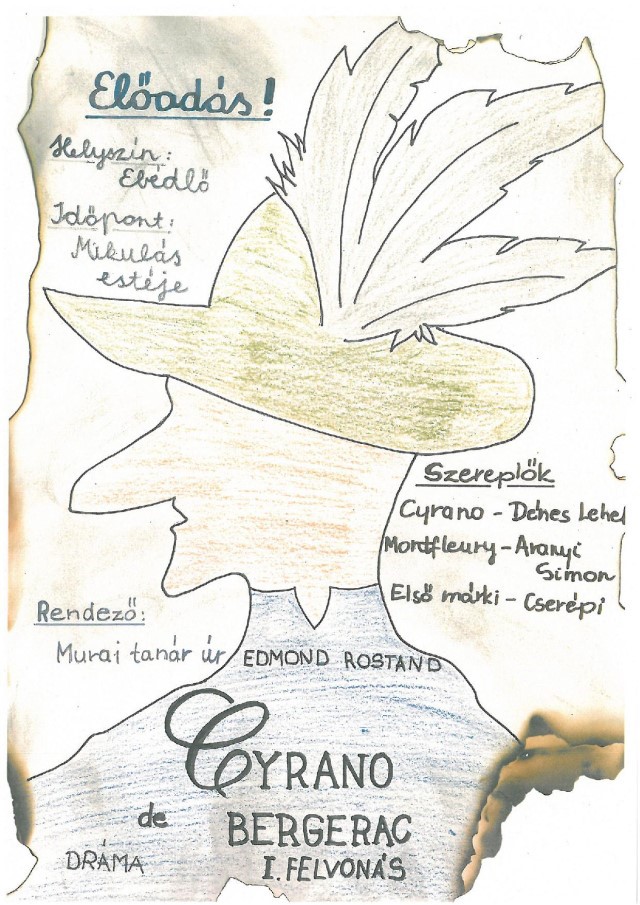 Előadás!
Helyszín:
Ebédlő
Időpont:
Mikulás
estéje
Szereplők
Cyrano - Dénes Lehel
Montfleury - Aranyi
Simon
Első márki - Cserépi
Rendező:
Murai tanár úr
EDMOND ROSTAND
CYRANO
de
BERGERAC
DRÁMA
I. FELVONÁS